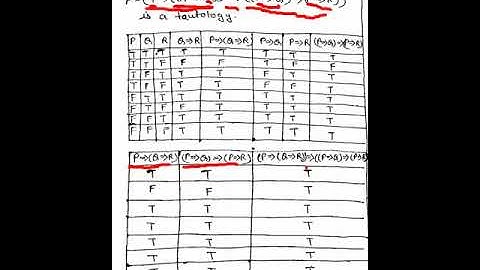 is a tautology.
P Q R Q⇒R P⇒(Q⇒R) P⇒Q P⇒R (P⇒Q)⇒(P⇒R)
T T T T T T T T
T T F F F T F F
T F T T T F T T
T F F T T F F T
F T T T T T T T
F T F F T T T T
F F T T T T T T
F F F T T T T T
P⇒(Q⇒R) (P⇒Q)⇒(P⇒R) (P⇒(Q⇒R))⇒((P⇒Q)⇒(P⇒R)
T T T
F F T
T T T
T T T
T T T
T T T